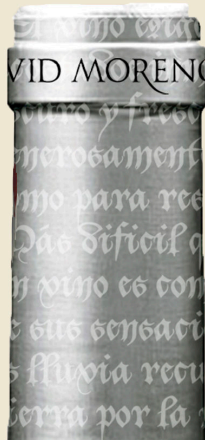 El vino cria
VID MORENO
oscuro y fresc
enerosament
mo para res
Más dificil q
n vino es com
e sus sensaci
s lluvia recu
ierra por la